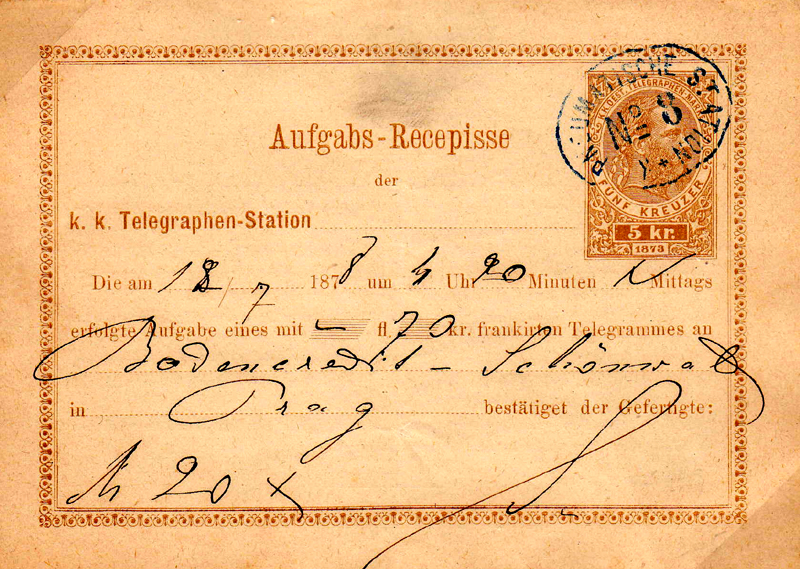 PNEUMATISCHE STATION
Nº 8
K. K. OEST. TELEGRAPHEN-MARKE
FÜNF KREUZER
5 kr.
1873
Aufgabs-Recepisse
der
k. k. Telegraphen-Station
Die am 18/7 1878 um 4 Uhr 20 Minuten N Mittags
erfolgte Aufgabe eines mit — fl. 70 kr. frankirten Telegrammes an
Bodencredit - Schönwal
in Prag bestätiget der Gefertigte:
20